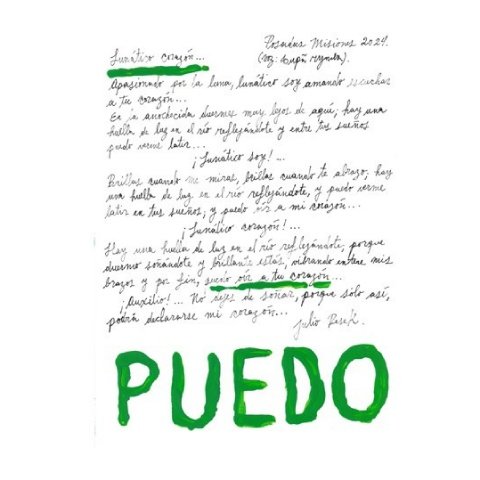 Posadas Misiones 2024.
Lunático corazón...
(Voz: Lupá Meynda).
Apasionado por la luna, lunático soy amando escuchar
a tu corazón...
En la anochecida duermes muy lejos de aquí; hay una
huella de luz en el río reflejándote y entre tus sueños
puedo verme latir...
¡Lunático soy!...
Brillas cuando me miras, brillas cuando te abrazo; hay
una huella de luz en el río reflejándote, y puedo verme
latir en tus sueños, y puedo oír a mi corazón...
¡Lunático corazón!...
Hay una huella de luz en el río reflejándote, porque
duermo soñándote y brillante estás, vibrando entre mis
brazos y por fin, sueño oír a tu corazón...
¡Auxilio!... No dejes de soñar, porque sólo así,
podrá declararse mi corazón...
Julio
PUEDO